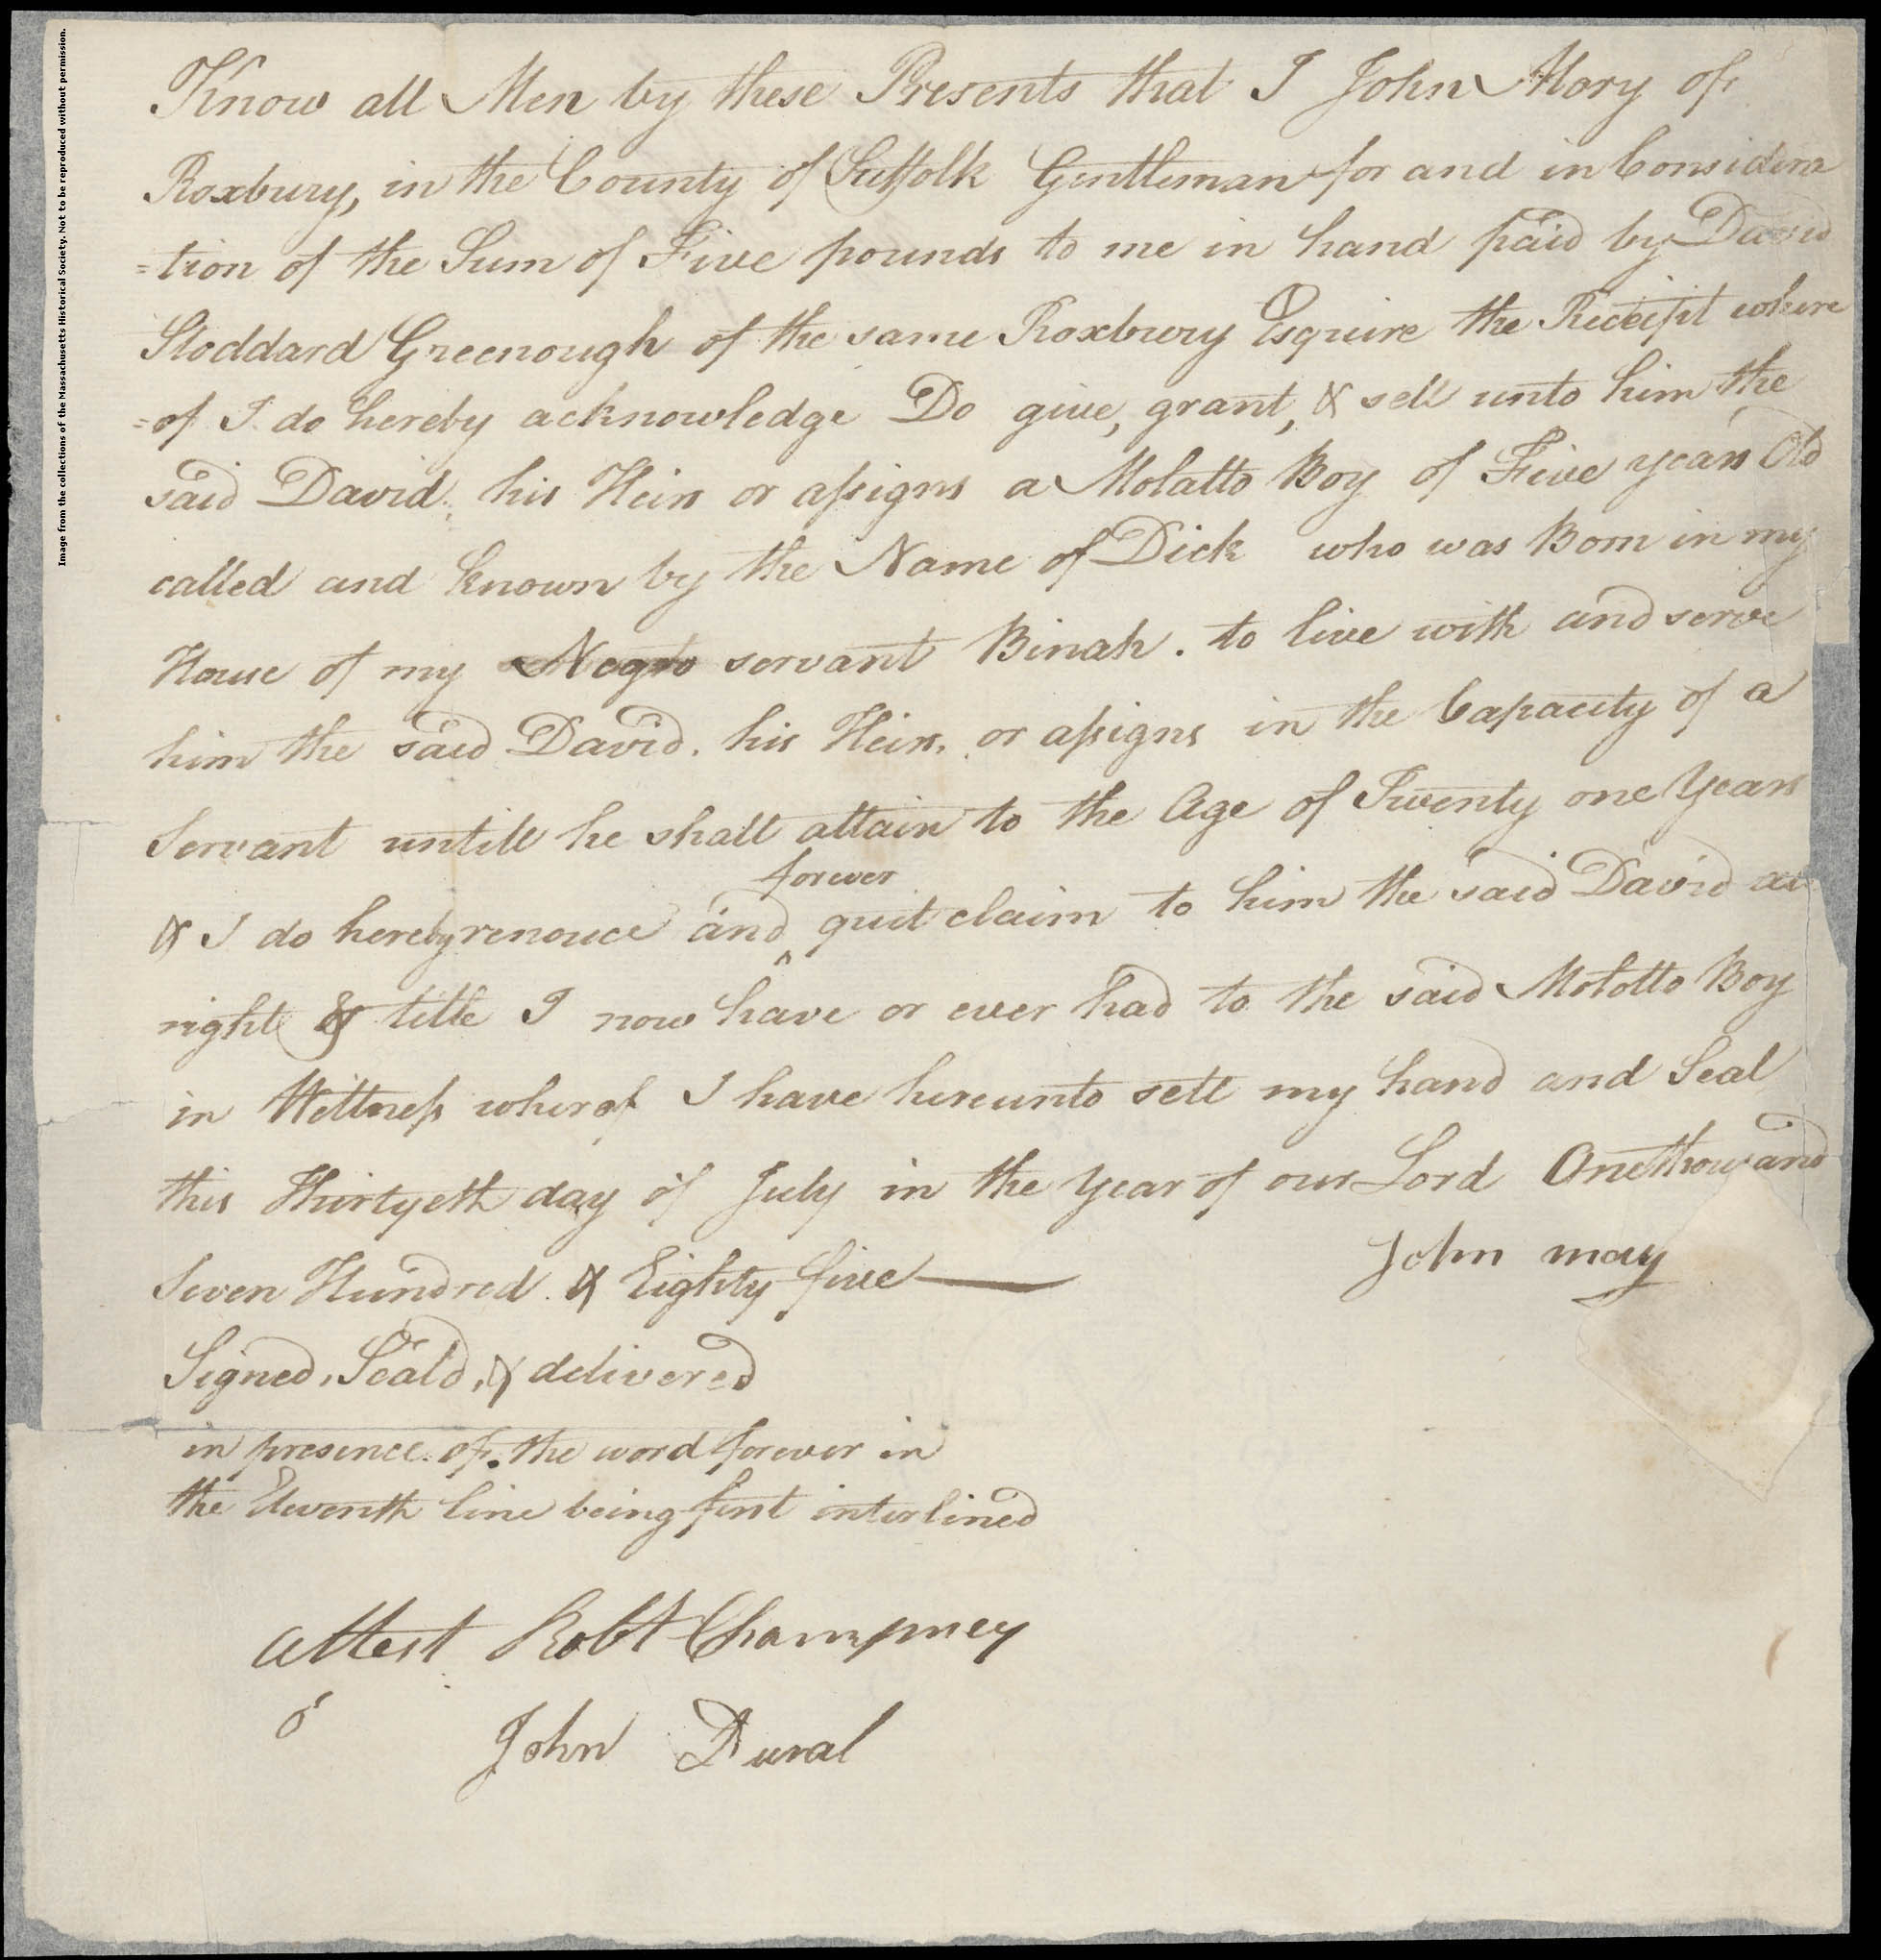 Image from the collections of the Massachusetts Historical Society. Not to be reproduced without permission.
Know all Men by these Presents that I John Mory of
Roxbury, in the County of Suffolk Gentleman for and in Considera
=tion of the Sum of Five pounds to me in hand paid by David
Stoddard Greenough of the same Roxbury Esquire the Receipt where
=of I do hereby acknowledge Do give, grant, & sell unto him the
said David, his Heirs or assigns a Molatto Boy of Five years Old
called and known by the Name of Dick who was Born in my
House of my Negro servant Binah. to live with and serve
him the said David. his Heirs, or assigns in the Capacity of a
Servant untill he shall attain to the Age of Twenty one Years
forever
& I do hereby renouce and ^ quit claim to him the said David
right & title I now have or ever had to the said Molotto Boy
in Wittness wherof I have hereunto sett my hand and Seal
this Thirtyeth day of July in the Year of our Lord One thousand
Seven Hundred & Eighty five
John may
Signed, Seald, & delivered
in presence of. the word forever in
the Eleventh line being first interlined
Attest Robt Champney
John Dural